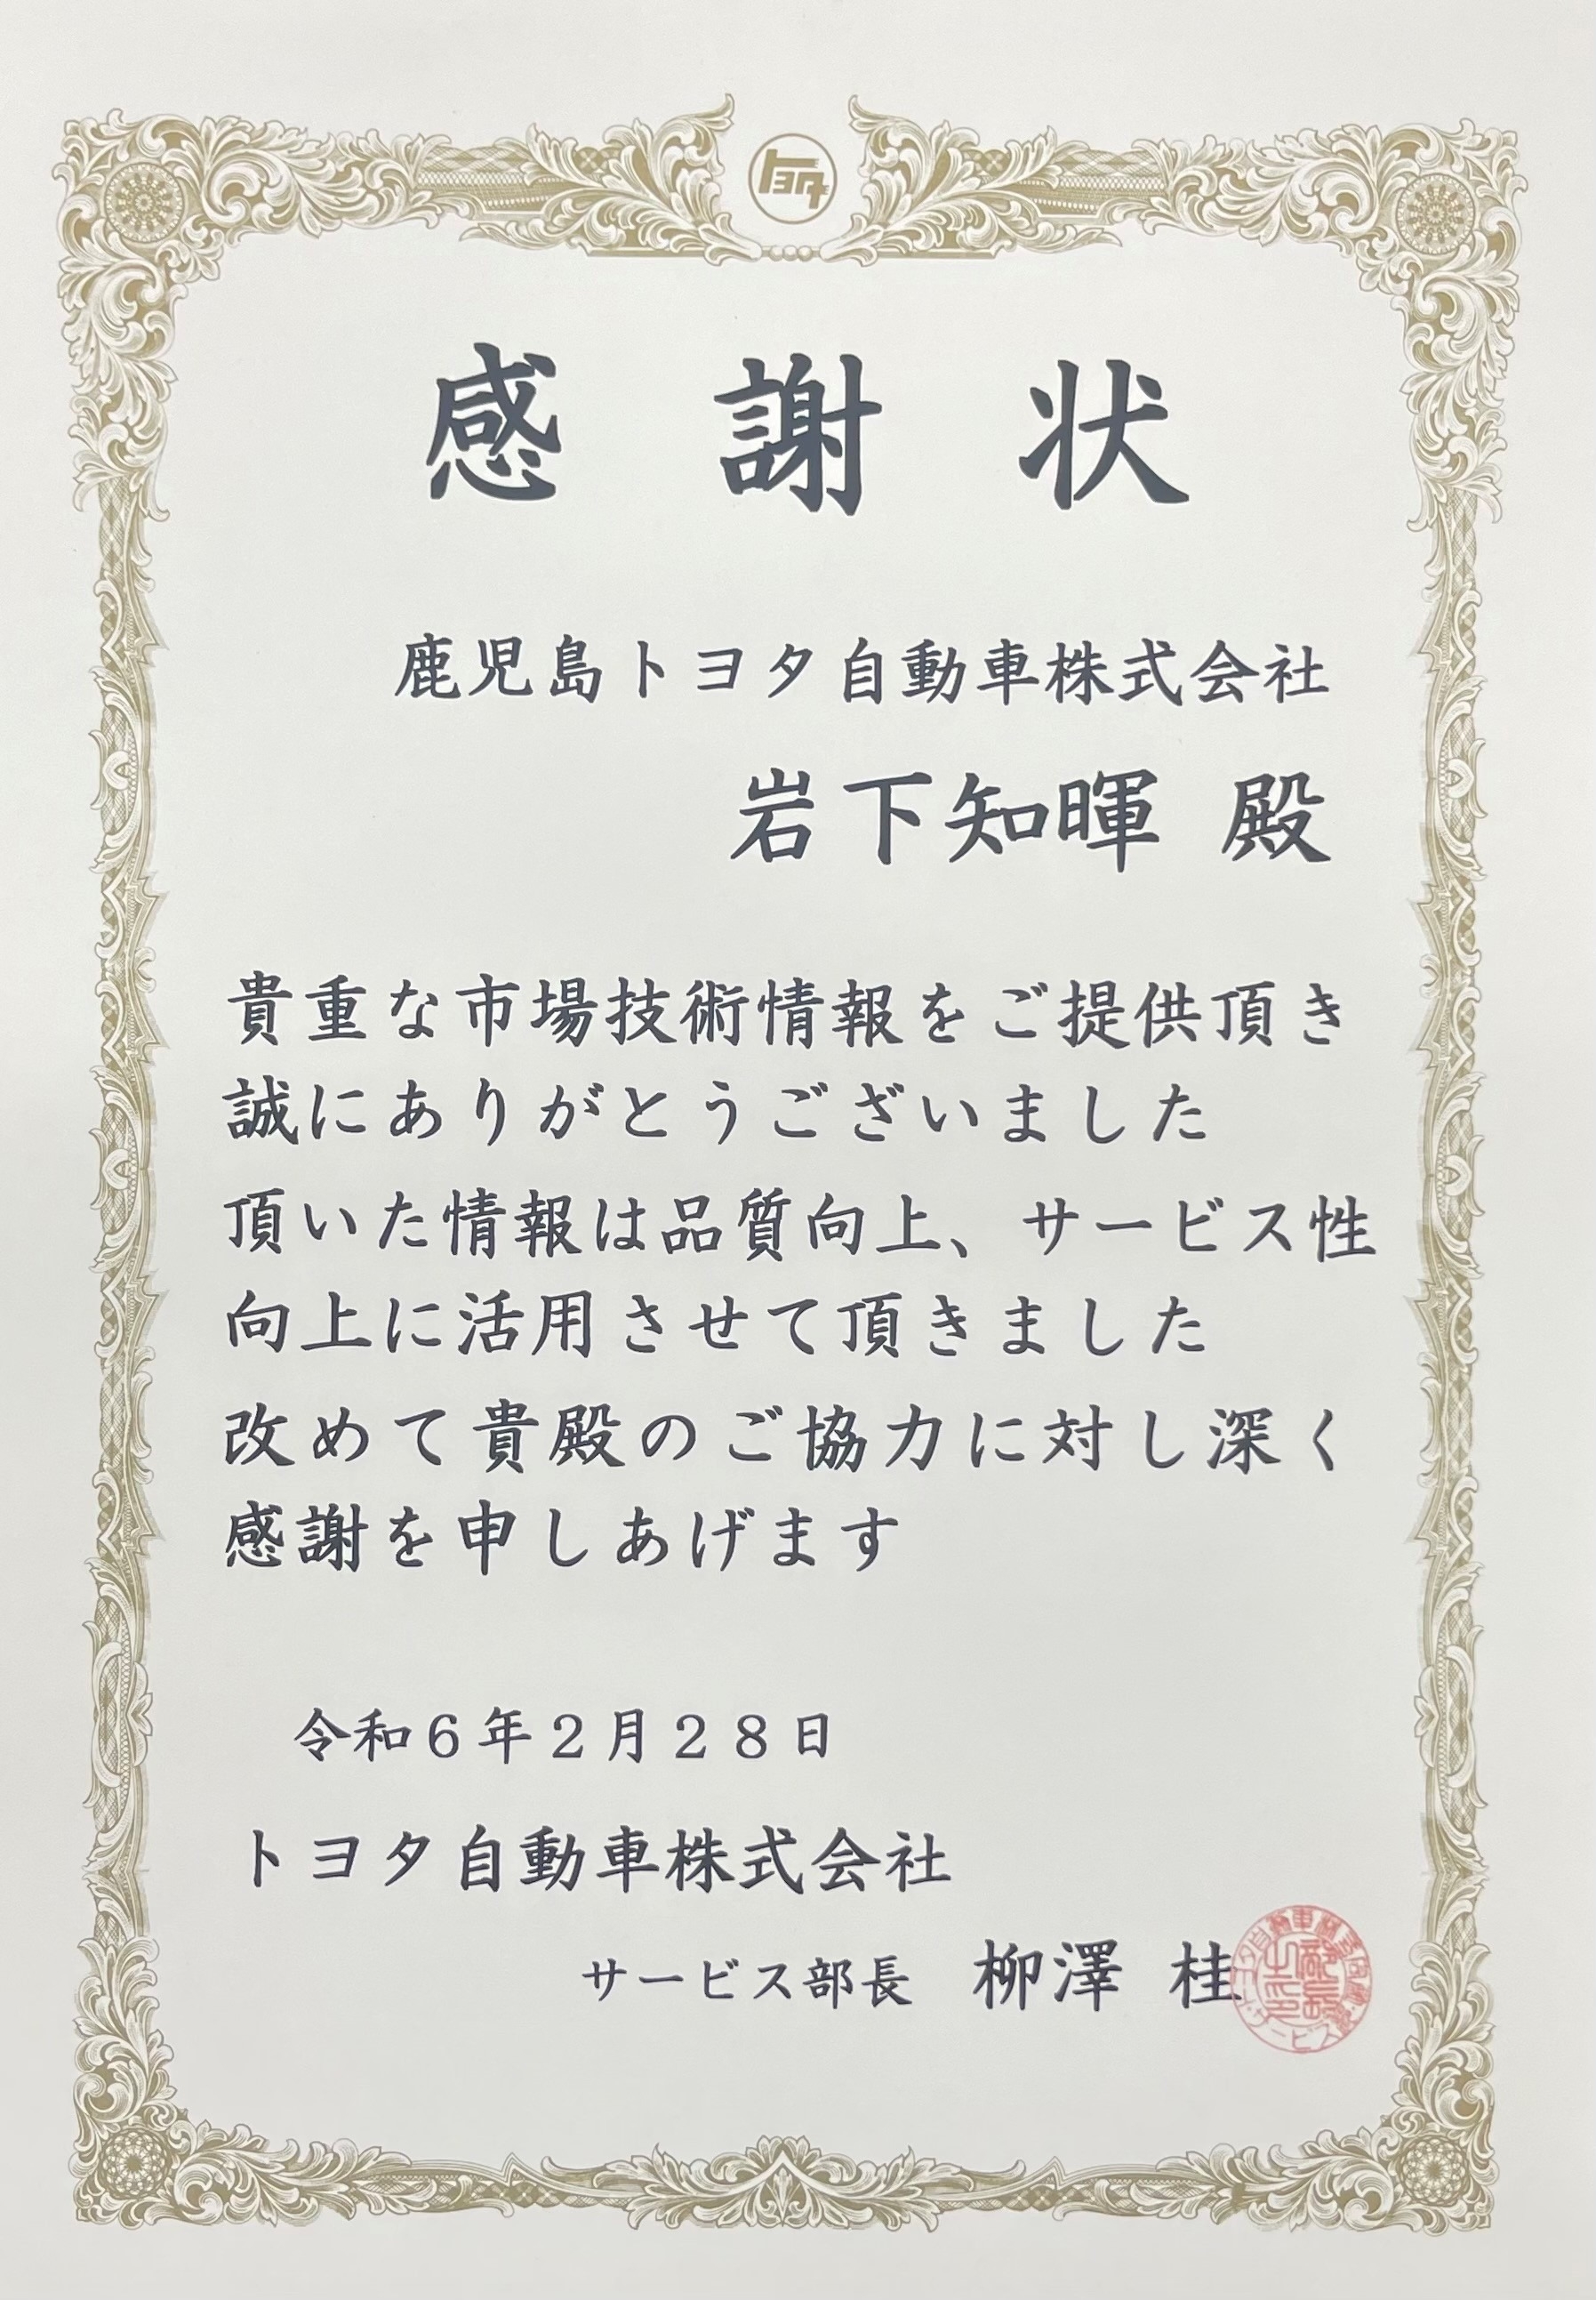 トヨタ
感謝状
鹿児島トヨタ自動車株式会社
岩下知暉 殿
貴重な市場技術情報をご提供頂き
誠にありがとうございました
頂いた情報は品質向上、サービス性
向上に活用させて頂きました
改めて貴殿のご協力に対し深く
感謝を申しあげます
令和6年2月28日
トヨタ自動車株式会社
サービス部長 柳澤 桂